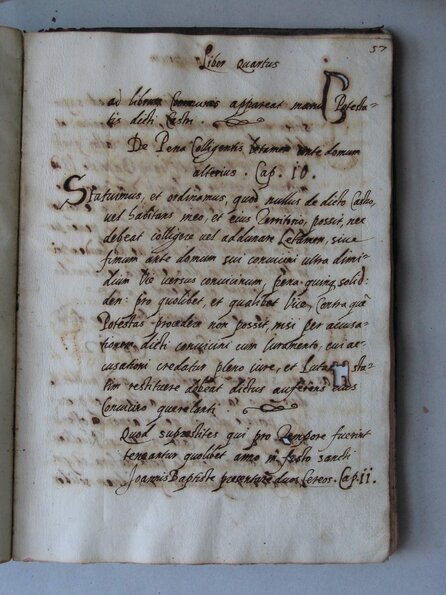 57
Liber Quartus
ad librum Communis appareat manu Potesta-
tis dicti Castri.
De Pena Colligentis letamen ante domum
alterius. Cap. 10.
Statuimus, et ordinamus, quod nullus de dicto Castro,
vel habitans in eo, et eius Territorio, possit, nec
debeat colligere vel adunare Letamen, sive
fimum ante domum sui convicini ultra dimi-
dium Vie versus convicinum, pena quinq solid:
den: pro quolibet, et qualibet Vice, Contra quē
Potestas procedere non possit, nisi per accusa-
tionem dicti convicini cum Iuramento, cui ac-
cusationi credatur pleno iure, et sta-
tim restituere debeat dictus auferens eidem
Convicino querelanti.
Quod suprastites qui pro Tempore fuerint
teneantur quolibet anno in festo sancti
Joannis Baptiste presentare duos Cereos. Cap. 11.